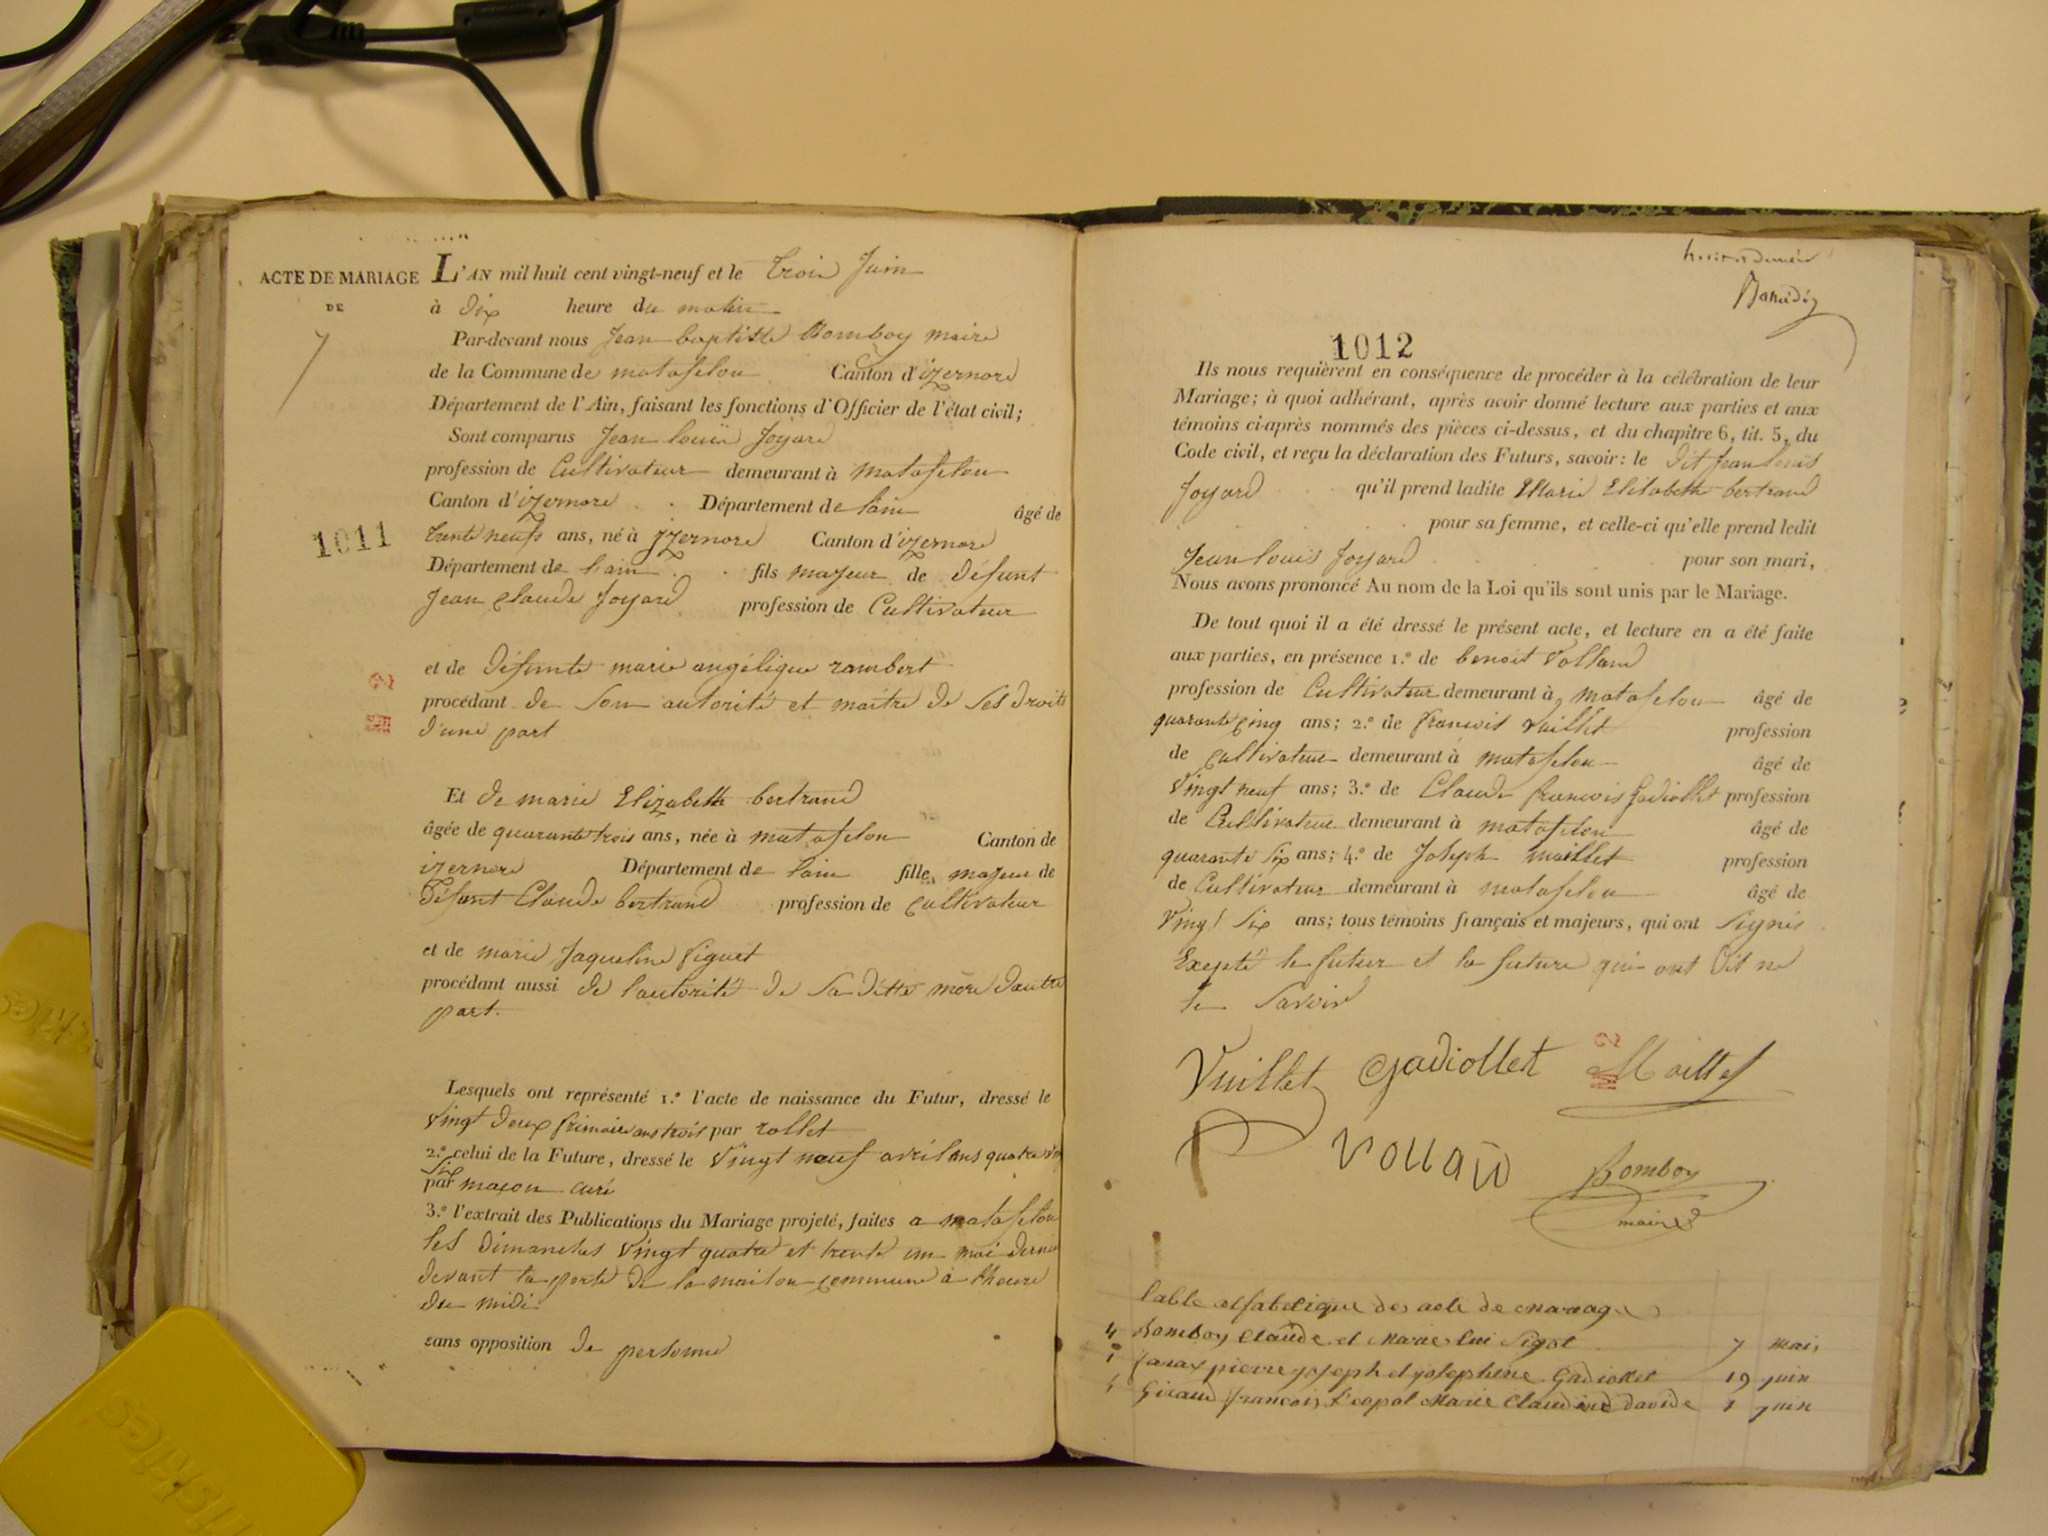 ACTE DE MARIAGE
DE
7
1011
L'AN mil huit cent vingt-neuf et le trois Juin
à dix heure du matin
Par-devant nous Jean baptiste Bomboy maire
de la Commune de matafelon Canton d'izernore
Département de l'Ain, faisant les fonctions d'Officier de l'état civil;
Sont comparus Jean louis Joyard
profession de Cultivateur demeurant à matafelon
Canton d'izernore Département de lain âgé de
trente neufs ans, né à jzernore Canton d'izernore
Département de lain fils majeur de défunt
Jean claude Joyard profession de Cultivateur
et de défunte marie angélique rambert
procédant de son autorité et maitre de ses droits
d'une part
Et de marie Elizabeth bertrand
âgée de quarante trois ans, née à matafelon Canton de
izernore Département de lain fille majeur de
défunt Claude bertrand profession de cultivateur
et de marie Jaqueline piguet
procédant aussi de l'autorité de sa ditte mère dautre
part.
Lesquels ont représenté 1.º l'acte de naissance du Futur, dressé le
vingt deux frimaire ans trois par rollet
2.º celui de la Future, dressé le vingt neuf avril ans quatre vin
six
par maçon curé
3.º l'extrait des Publications du Mariage projeté, faites a matafelon
les dimanches vingt quatre et trente un mai dernier
devant la porte de la maison commune à lheure
du midi
sans opposition de personne
1012
Ils nous requièrent en conséquence de procéder à la célébration de leur
Mariage; à quoi adhérant, après avoir donné lecture aux parties et aux
témoins ci-après nommés des pièces ci-dessus, et du chapitre 6, tit. 5, du
Code civil, et reçu la déclaration des Futurs, savoir: le dit Jean louis
Joyard qu'il prend ladite Marie Elisabeth bertrand
pour sa femme, et celle-ci qu'elle prend ledit
Jean louis Joyard pour son mari,
Nous avons prononcé Au nom de la Loi qu'ils sont unis par le Mariage.
De tout quoi il a été dressé le présent acte, et lecture en a été faite
aux parties, en présence 1.º de benoit Volland
profession de Cultivateur demeurant à matafelon âgé de
quarante cinq ans; 2.º de françois vuillet profession
de cultivateur demeurant à matafelon âgé de
vingt neuf ans; 3.º de Claude françois Gadiollet profession
de Cultivateur demeurant à matafelon âgé de
quarante six ans; 4.º de Joseph maillet profession
de Cultivateur demeurant à matafelon âgé de
vingt six ans; tous témoins français et majeurs, qui ont signés
Exepté le futur et la future qui ont dit ne
le savoir
Vuillet Gadiollet Maillet
Bomboy
maire
table alfabetique des acte de mariage
4 Bomboy Claude et Marie 7 mai
1 pierre joseph et josephine Gadiollet 19 juin
Giraud françois Marie Claudine davide 1 juin